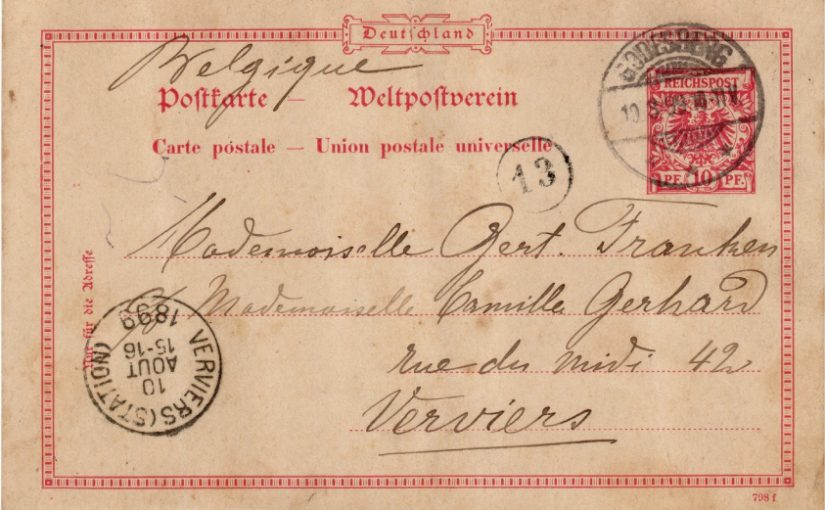 Deutschland
Belgique
Postkarte — Weltpostverein
Carte postale — Union postale universelle
GODESBERG
10 8 99
REICHSPOST
PF. 10 PF.
13
Mademoiselle Gert. Franken
Mademoiselle Camille Gerhard
rue du midi 42
Verviers
Nur für die Adresse
VERVIERS (STATION)
10
AOUT
15-16
1899
798 f